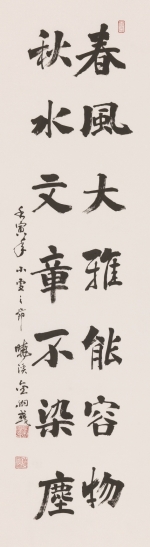 春風大雅能容物
秋水文章不染塵
壬寅年小雪之節